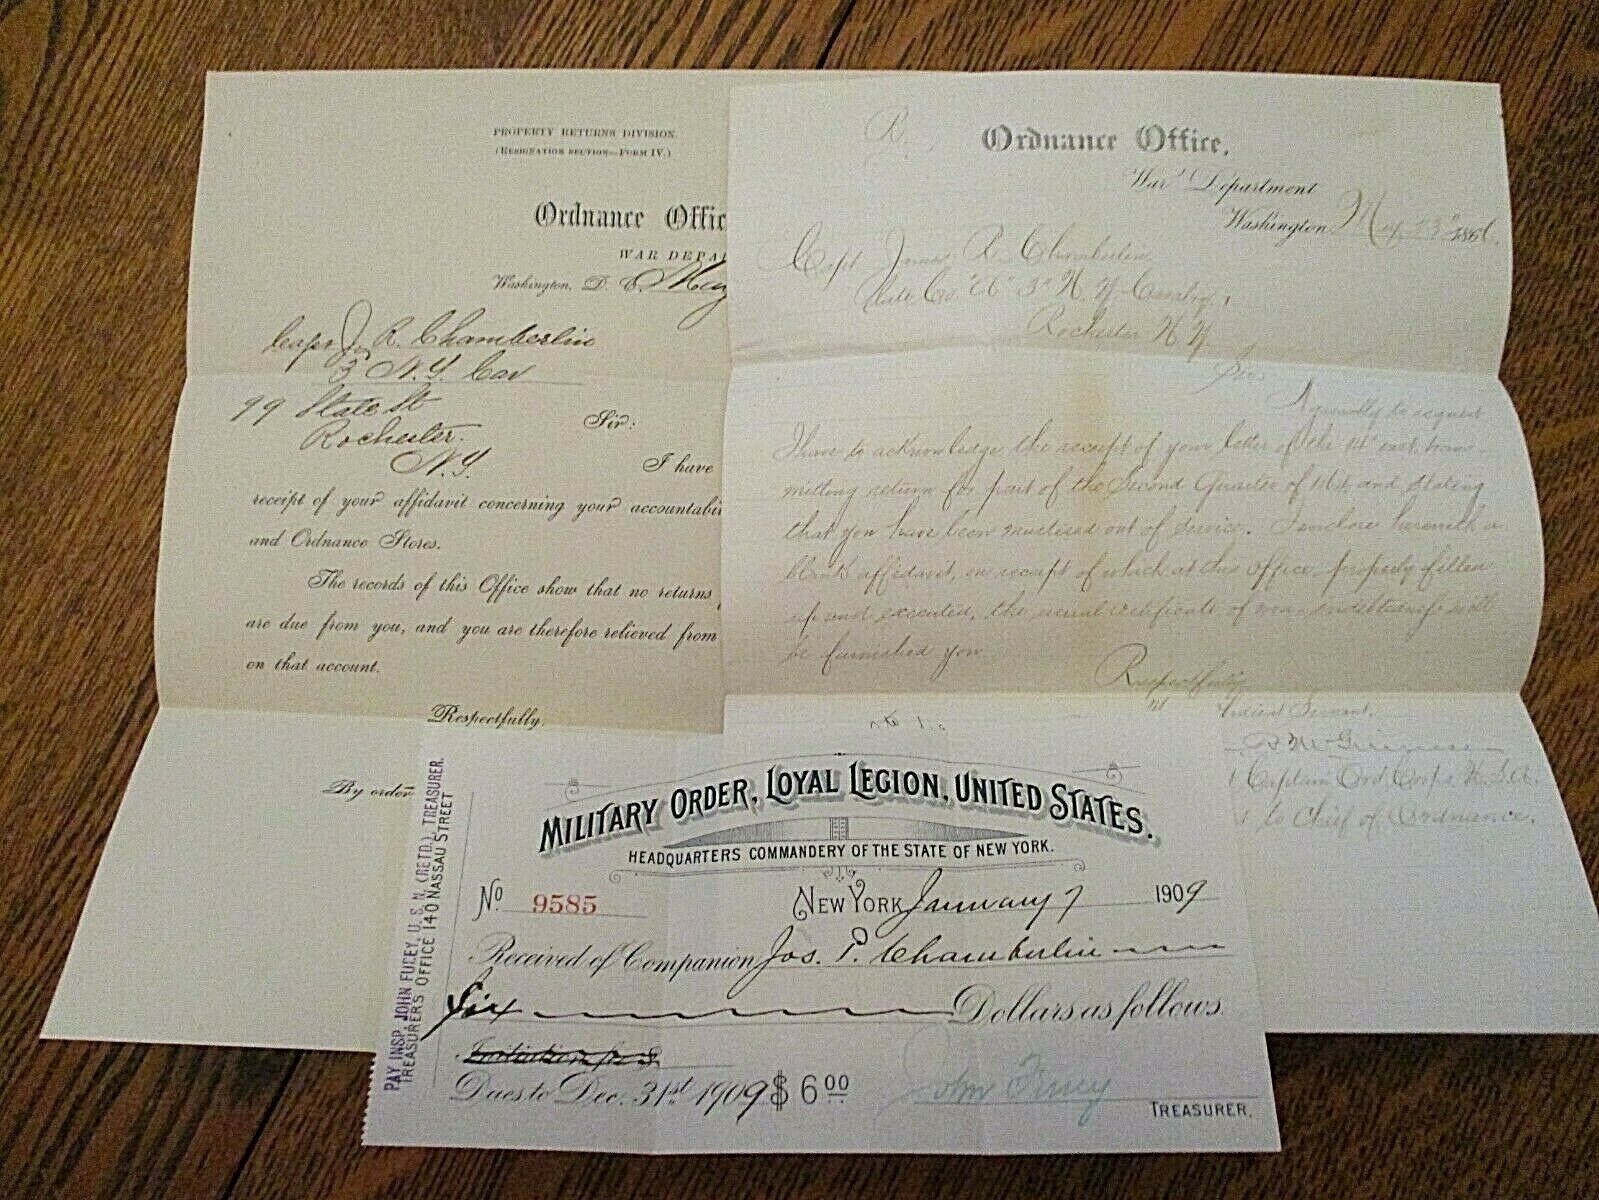 PROPERTY RETURNS DIVISION.
(RESIGNATION SECTION—FORM IV.)
Ordnance Offic
WAR DEPA
Washington, D. C. May
Capt J. R. Chamberlin
3 N.Y. Cav
99 State St
Rochester.
N.Y.
Sir:
I have
receipt of your affidavit concerning your accountabi
and Ordnance Stores.
The records of this Office show that no returns
are due from you, and you are therefore relieved from
on that account.
Respectfully,
By order
R
Ordnance Office,
War Department
Washington, May 23" 186
Capt James R. Chamberlin
Late Co. 3" N.Y. Cavalry,
Rochester N.Y.
Sir
I have to acknowledge the receipt of your letter of the inst, trans-
mitting return for part of the Second Quarter of and stating
that you have been mustered out of service. I enclose herewith a
blank affidavit, on receipt of which at this office, properly filled
up and executed, the usual certificate of non-indebtedness will
be furnished you
Respectfully
Obedient Servant,
Captain Ord Corps U.S.A.
to Chief of Ordnance.
MILITARY ORDER, LOYAL LEGION, UNITED STATES.
HEADQUARTERS COMMANDERY OF THE STATE OF NEW YORK.
No 9585
NEW YORK January 7 1909
Received of Companion Jos. P. Chamberlin
Six Dollars as follows.
Initiation fee $
Dues to Dec. 31st 1909 $ 6 00
John Furey
TREASURER.
PAY INSP. JOHN FUREY, U. S. N. (RETD.) TREASURER.
TREASURERS OFFICE 140 NASSAU STREET